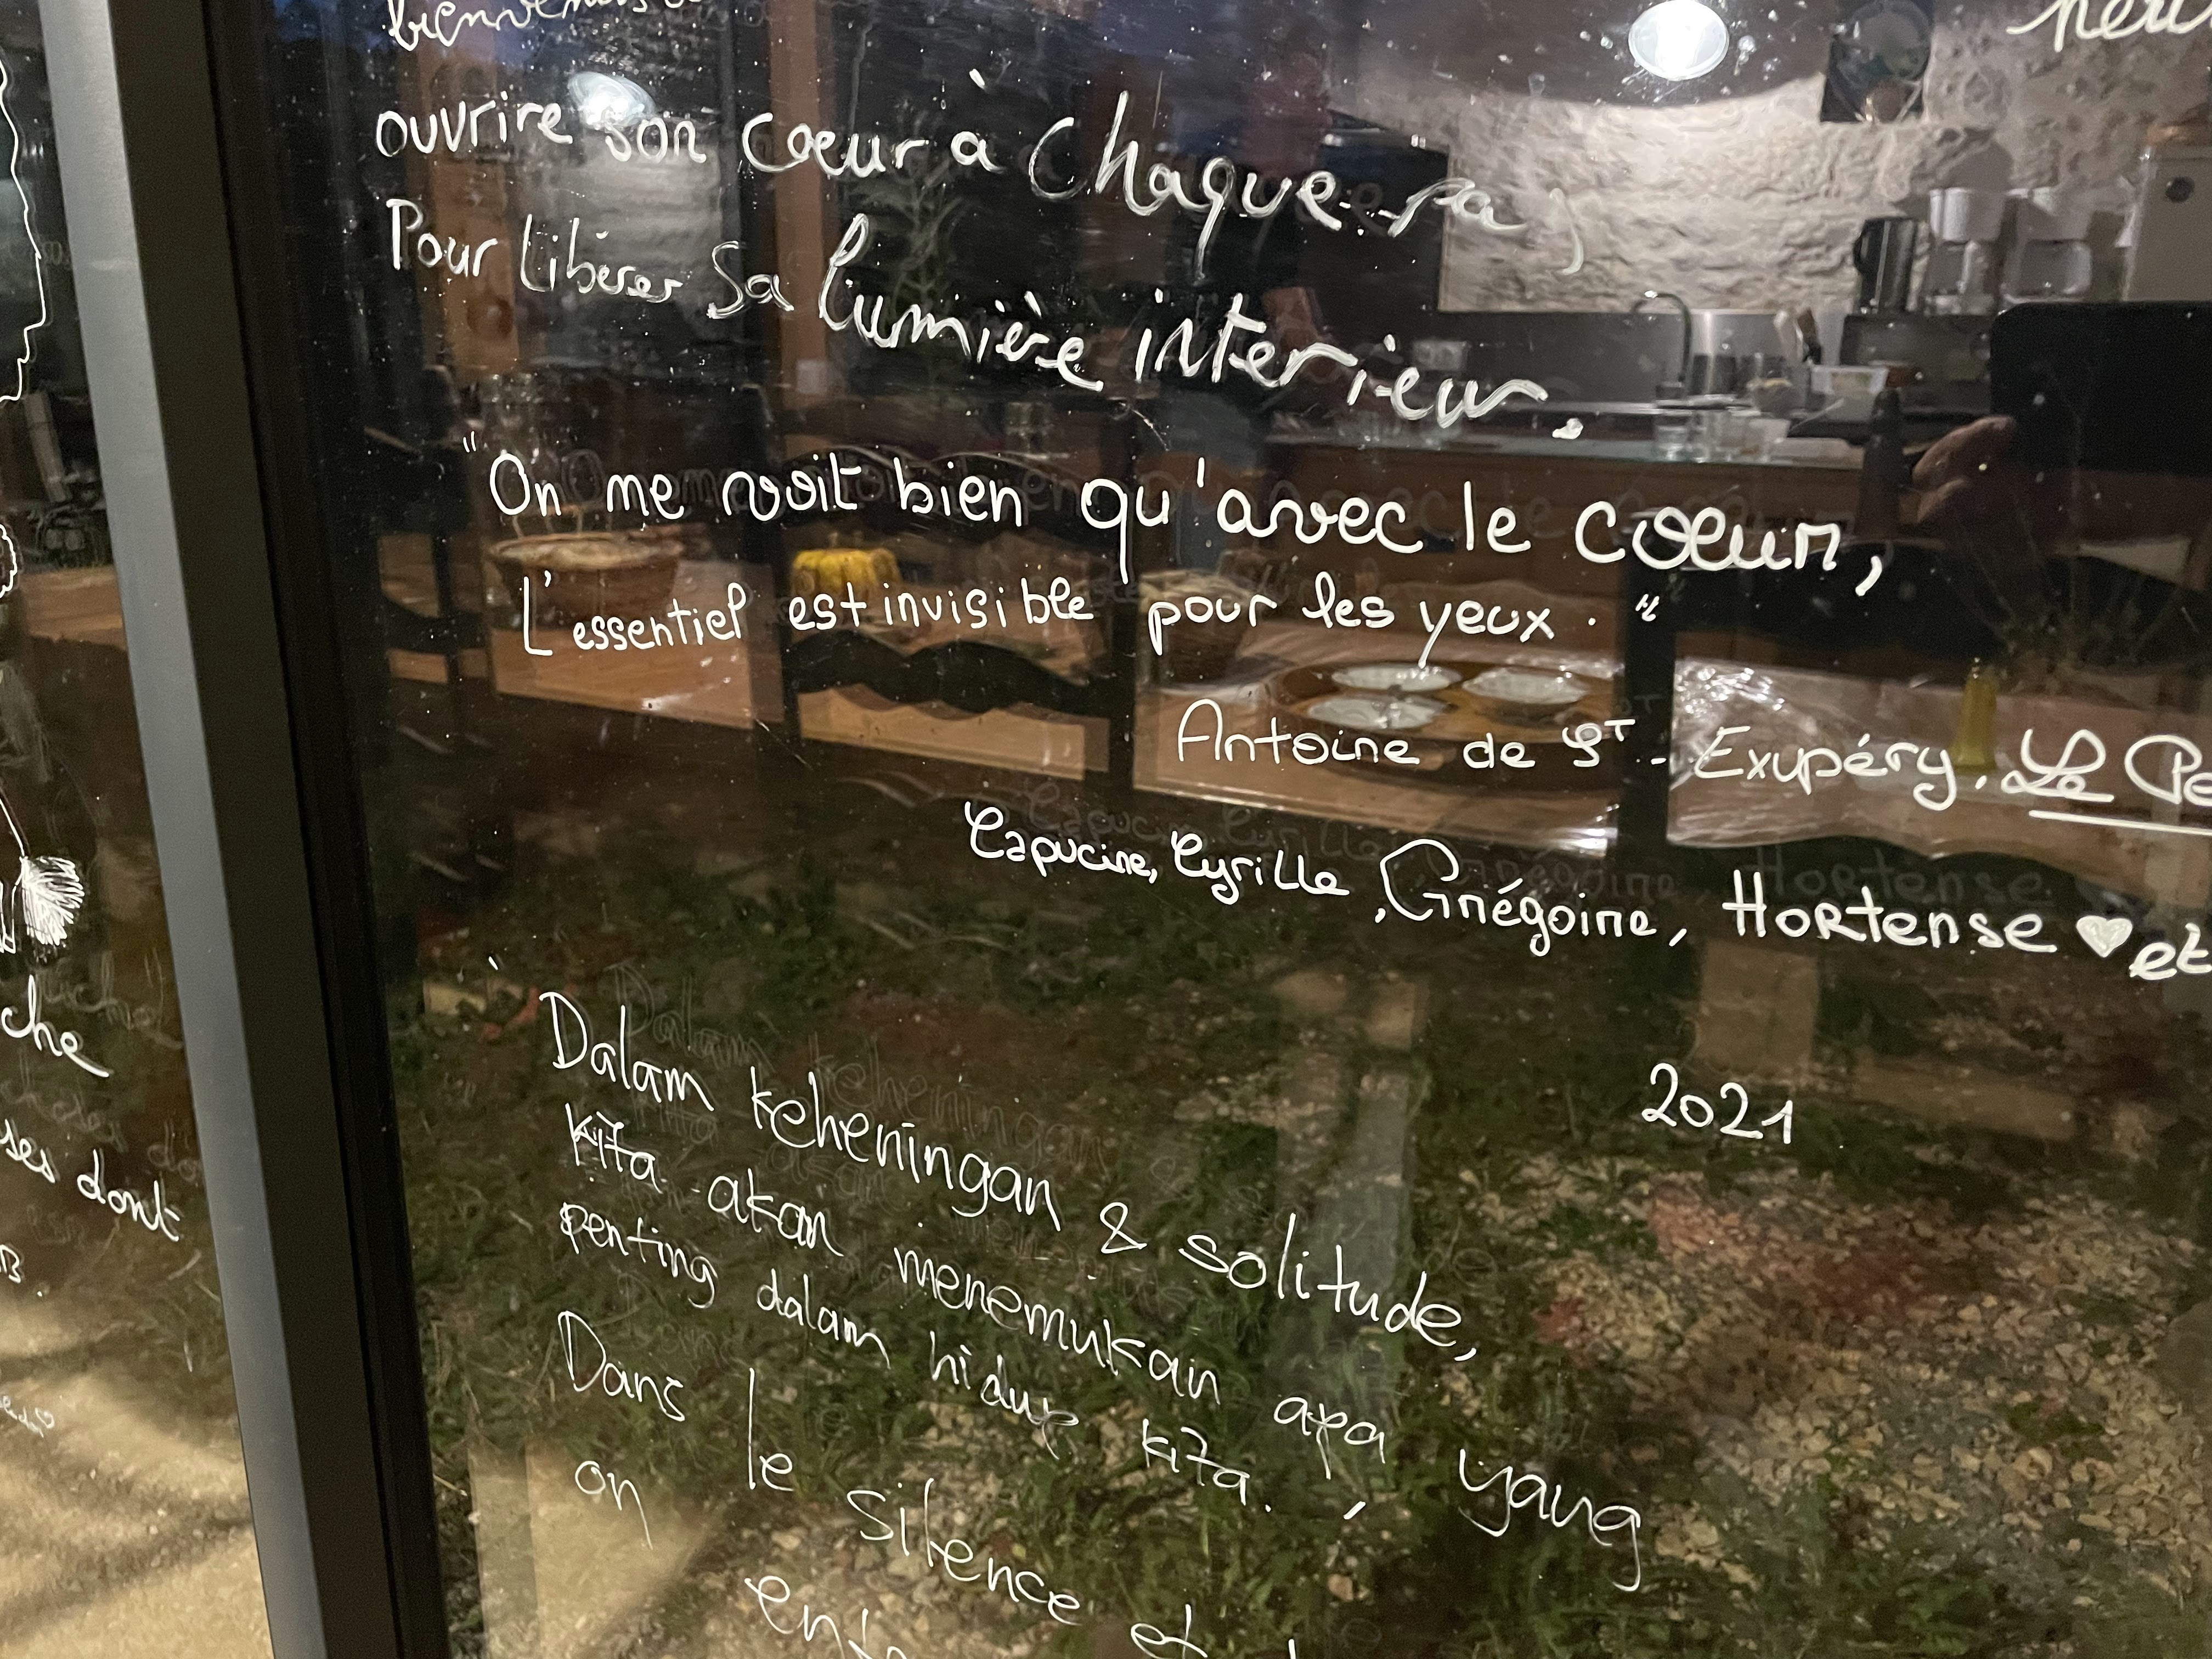 bienvenus
ouvrire son coeur à Chaque
Pour libérer sa lumière interieur.
"On me voit bien qu'avec le cœur,
L'essentiel est invisible pour les yeux."
Antoine de St-Exupéry. Le Pe
Capucine, Cyrille, Grégoire, Hortense ♥ et
2021
Dalam keheningan & solitude,
kita akan menemukan apa yang
penting dalam hidup kita.
Dans le silence et
on
che
ses dont